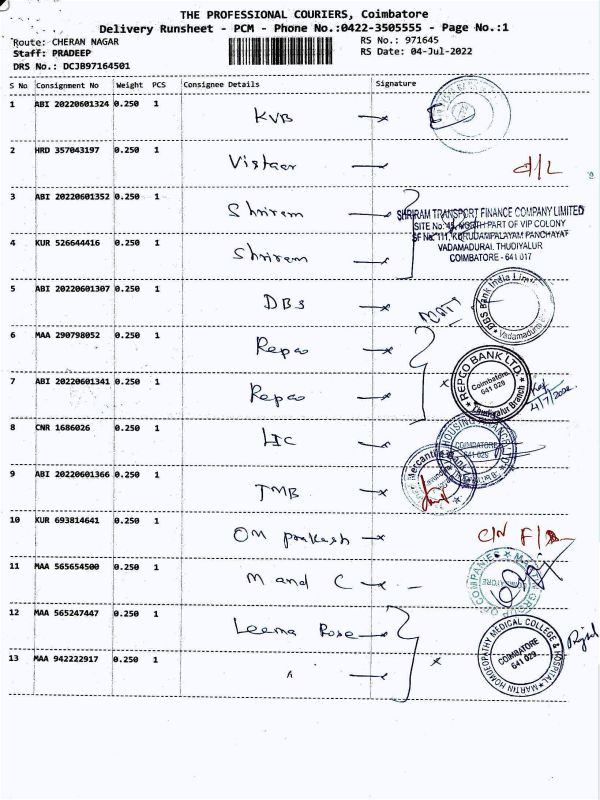 THE PROFESSIONAL COURIERS, Coimbatore
Delivery Runsheet - PCM - Phone No.:0422-3505555 - Page No.:1
Route: CHERAN NAGAR
RS No.: 971645
Staff: PRADEEP
RS Date: 04-Jul-2022
DRS No.: DCJB97164501
S No Consignment No Weight PCS Consignee Details Signature
1 ABI 20220601324 0.250 1 KVB
2 HRD 357043197 0.250 1 Vistaar
d/L
3 ABI 20220601352 0.250 1 Shriram
SHRIRAM TRANSPORT FINANCE COMPANY LIMITED
SITE No: 45, NORTH PART OF VIP COLONY
SF No. 111, KURUDAMPALAYAM PANCHAYAT
VADAMADURAI, THUDIYALUR
COIMBATORE - 641 017
4 KUR 526644416 0.250 1 Shriram
5 ABI 20220601307 0.250 1 DBS
DBS Bank India Limit
Vadamadurai
6 MAA 290798052 0.250 1 Repco
REPCO BANK LTD.
Coimbatore
641 029
Thudiyalur Branch
4/7/2022
7 ABI 20220601341 0.250 1 Repco
8 CNR 1686026 0.250 1 LIC
HOUSING FINANCE
COIMBATORE
9 ABI 20220601366 0.250 1 TMB
Mercantile Bank
10 KUR 693814641 0.250 1 OM prakash
C/N
11 MAA 565654500 0.250 1 M and C
GROUP OF COMPANIES
COIMBATORE
12 MAA 565247447 0.250 1 Leema Rose
MARTIN HOMOEOPATHY MEDICAL COLLEGE & HOSPITAL
COIMBATORE
641 029
13 MAA 942222917 0.250 1 "